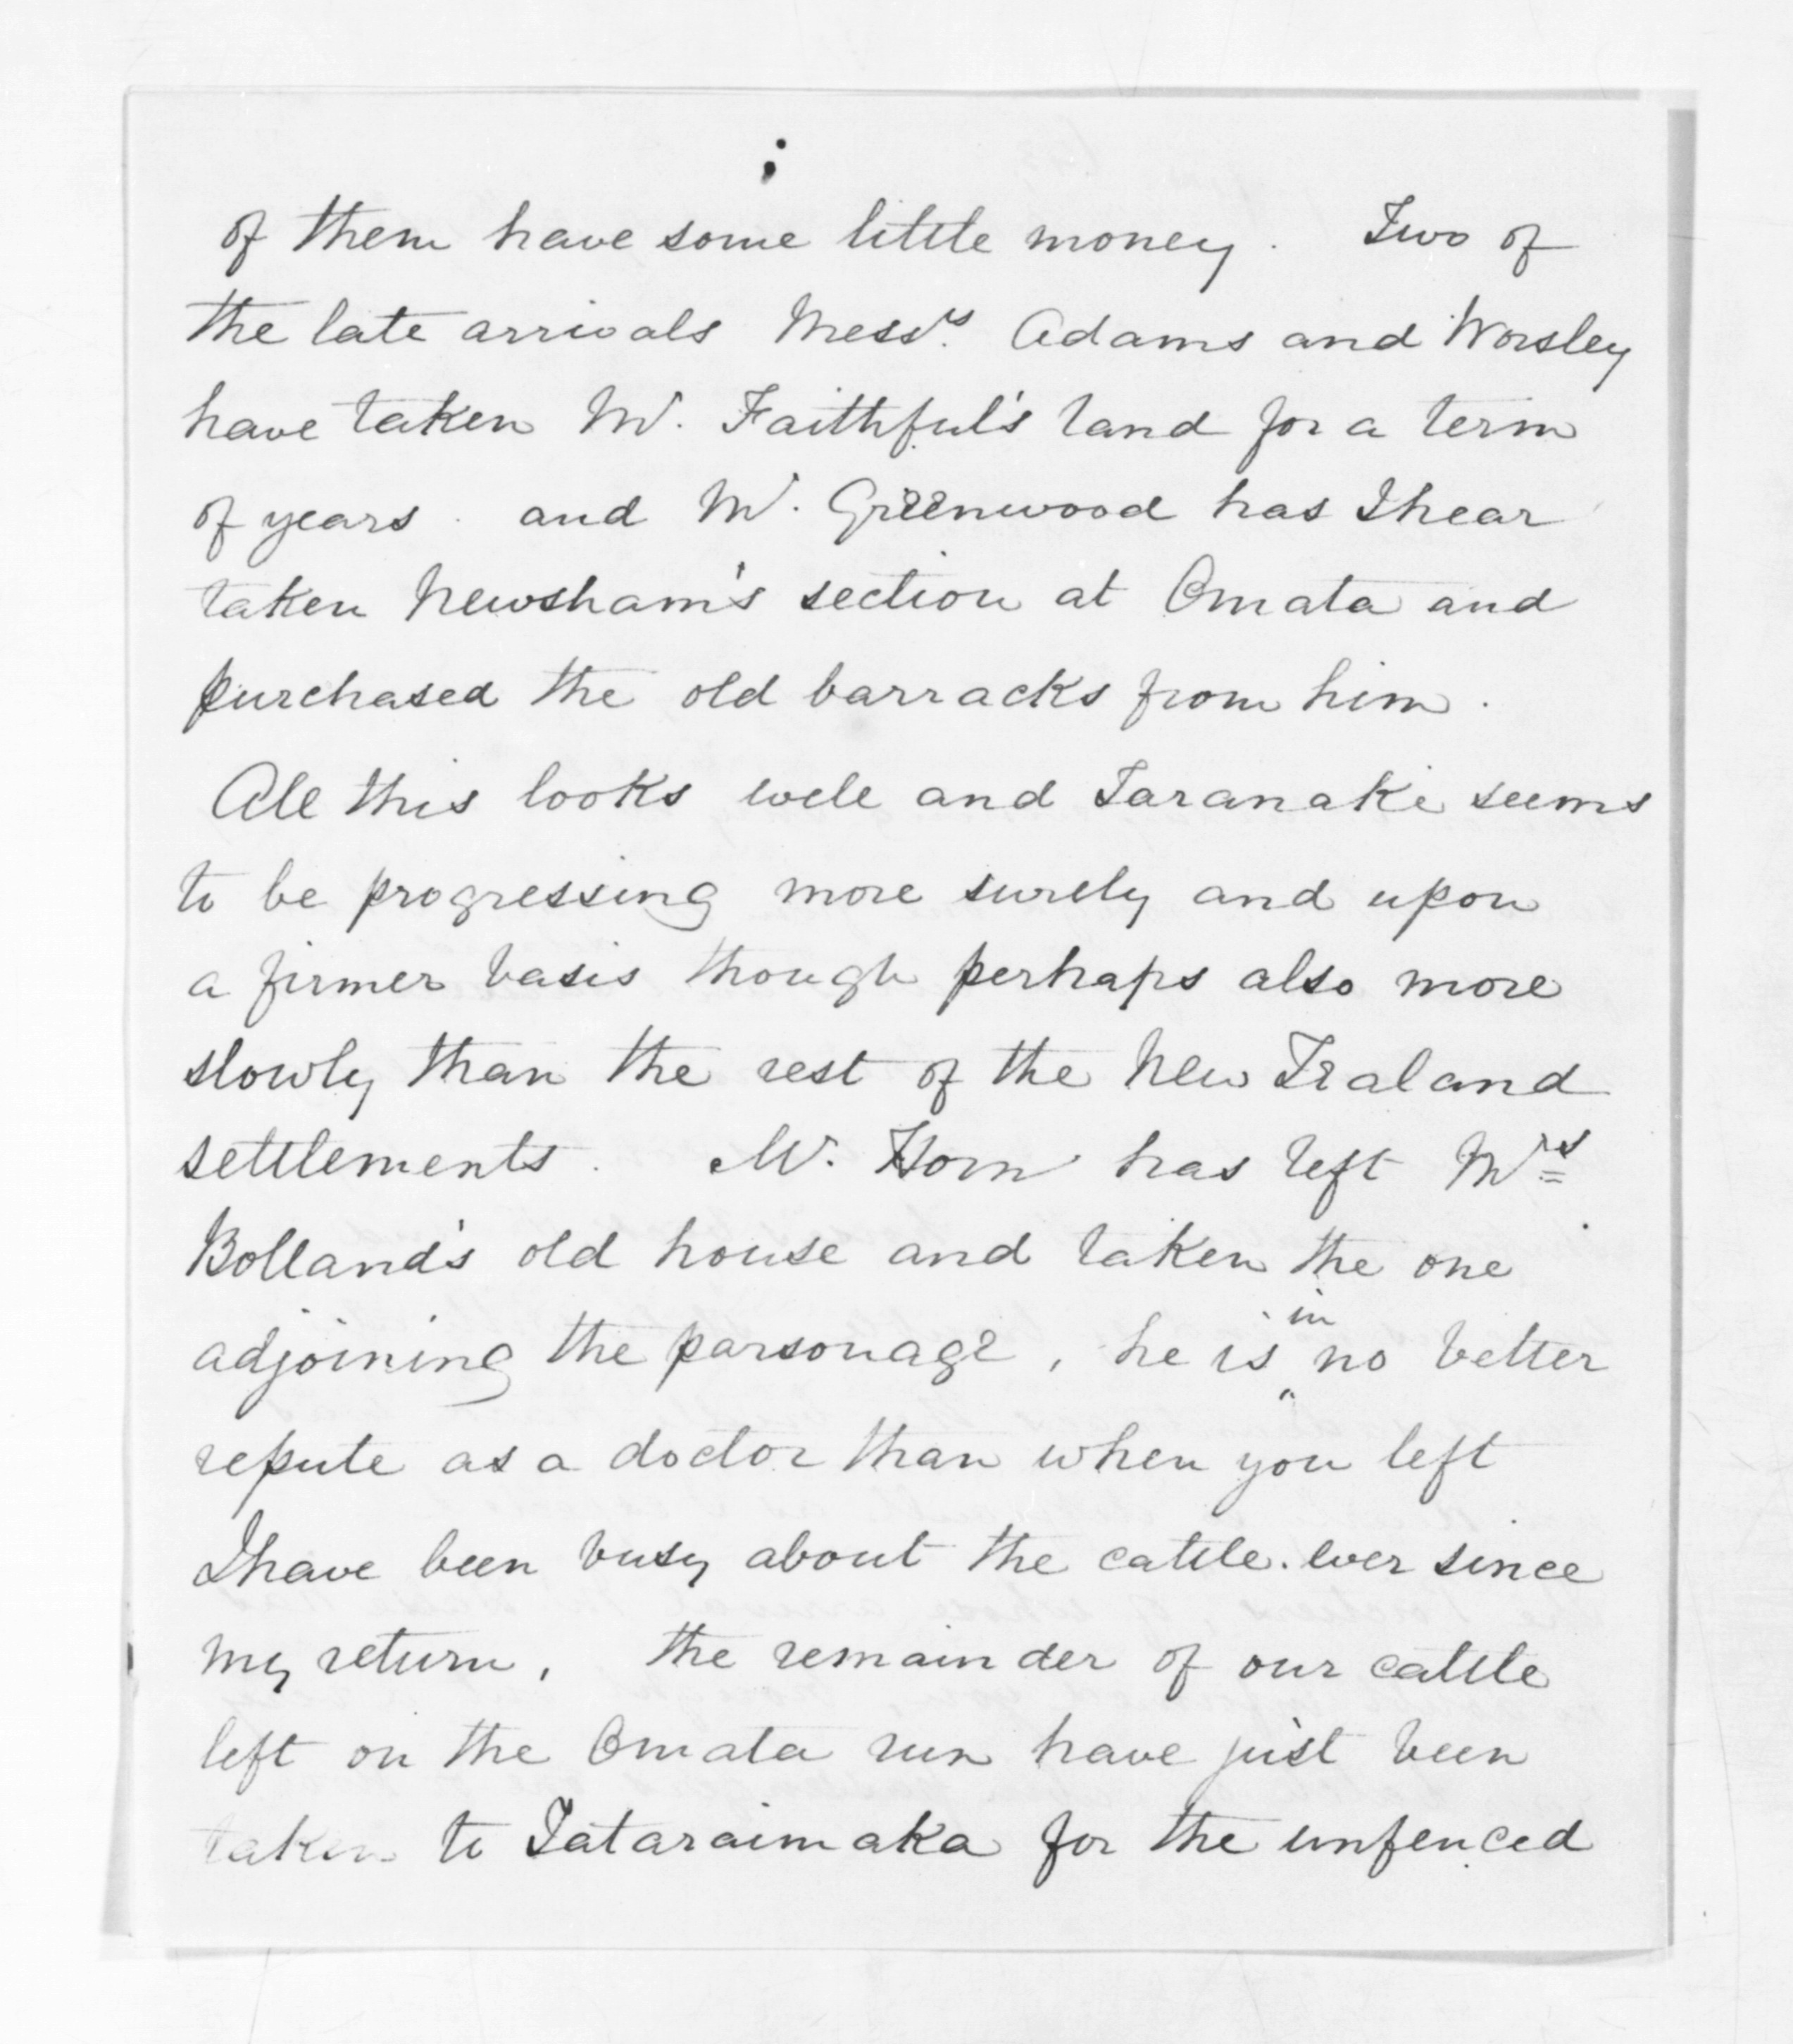 of them have some little money. Two of
the late arrivals Messrs. Adams and Worsley
have taken Mr. Faithful's land for a term
of years. and Mr. Greenwood has I hear
taken Newsham's section at Omata and
purchased the old barracks from him.
All this looks well and Taranaki seems
to be progressing more surely and upon
a firmer basis though perhaps also more
slowly than the rest of the New Zealand
settlements. Mr. Horn has left Mrs
Bolland's old house and taken the one
adjoining the parsonage, he is in no better
repute as a doctor than when you left
I have been busy about the cattle. ever since
my return, the remainder of our cattle
left on the Omata run have just been
taken to Tataraimaka for the unfenced